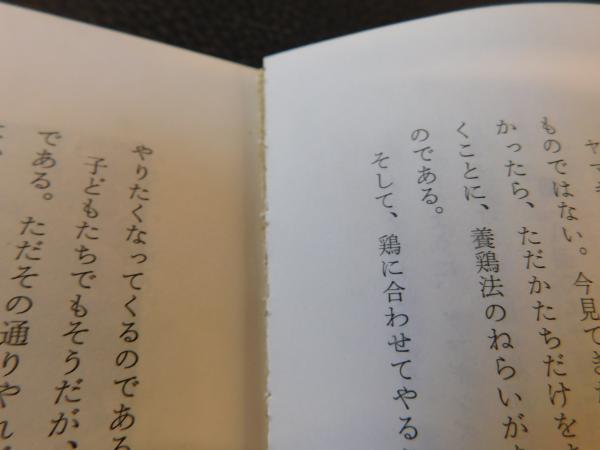 ヤマギ
ものではない。今見てきた
かったら、ただかたちだけを
くことに、養鶏法のねらいが
のである。
そして、鶏に合わせてやる
やりたくなってくるのである
子どもたちでもそうだが、
である。ただその通りやれ